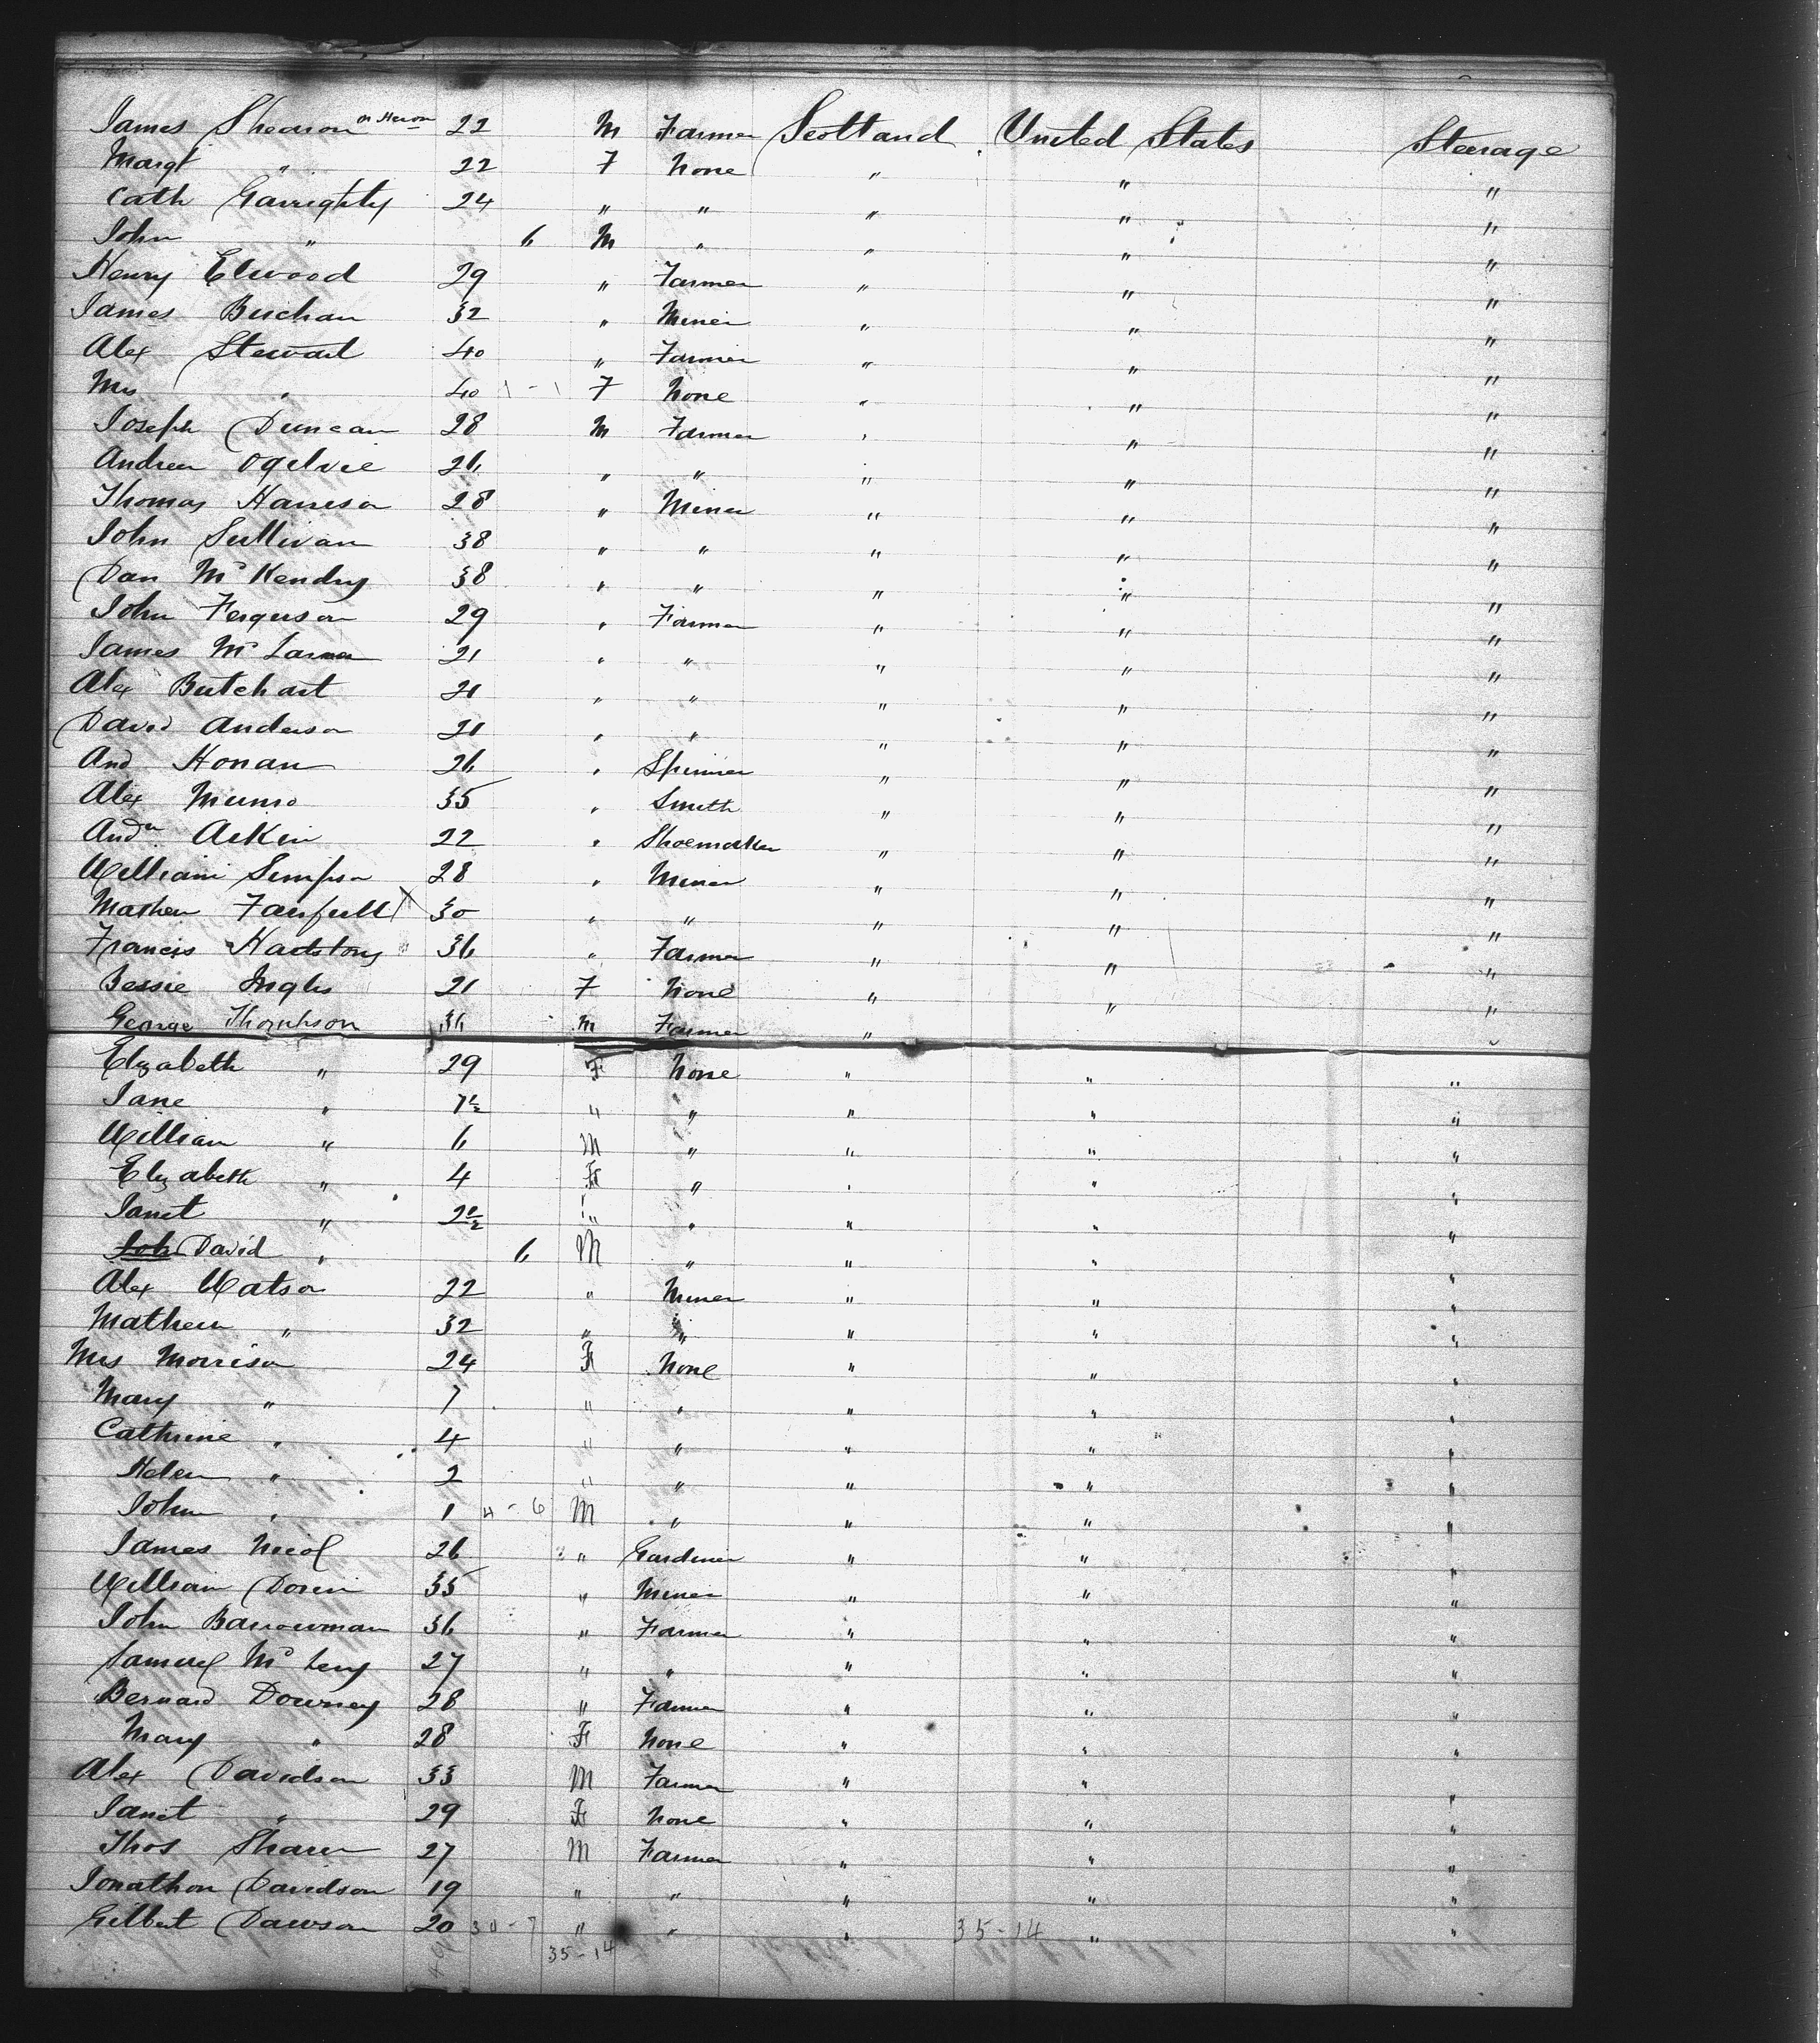 James Shearon or Heron 22 M Farmer Scotland United States Steerage
Margt " 22 F None " " "
Cath Garrighty 24 " " " " "
John " 6 M " " " "
Henry Elwood 29 " Farmer " " "
James Buchan 32 " Miner " " "
Alex Stewart 40 " Farmer " " "
Mrs " 40 1 - 1 F None " " "
Joseph Duncan 28 M Farmer " " "
Andrew Ogilvie 26 " " " " "
Thomas Harrison 28 " Miner " " "
John Sullivan 38 " " " " "
Dan McKendry 38 " " " " "
John Ferguson 29 " Farmer " " "
James McLaren 21 " " " " "
Alex Butchart 21 " " " " "
David Anderson 21 " " " " "
And Honan 26 " Spinner " " "
Alex Munro 35 " Smith " " "
Andw Aikin 22 " Shoemaker " " "
William Simpson 28 " Miner " " "
Mathew Fairfull 30 " " " " "
Francis Hartstong 36 " Farmer " " "
Bessie Inglis 21 F None " " "
George Thompson 36 M Farmer " "
Elizabeth " 29 F None " " "
Jane " 7½ " " " " "
William " 6 M " " " "
Elizabeth " 4 F " " " "
Janet " 2½ " " " " "
Joh David " 6 M " " " "
Alex Watson 22 " Miner " " "
Mathew " 32 " " " " "
Mrs Morrison 24 F None " " "
Mary " 7 " " " " "
Cathrine " 4 " " " " "
Helen " 2 " " " " "
John " 1 4 - 6 M " " " "
James Nicol 26 " Gardener " " "
William Dorin 35 " Miner " " "
John Barrowman 36 " Farmer " " "
Samuel Mc 27 " " " " "
Bernard Downey 28 " Farmer " " "
Mary " 28 F None " " "
Alex Davidson 33 M Farmer " " "
Janet " 29 F None " " "
Thos Sharer 27 M Farmer " " "
Jonathon Davidson 19 " " " " "
Gilbert Dawson 20 30 - 7 " " " 35-14 " "
35-14